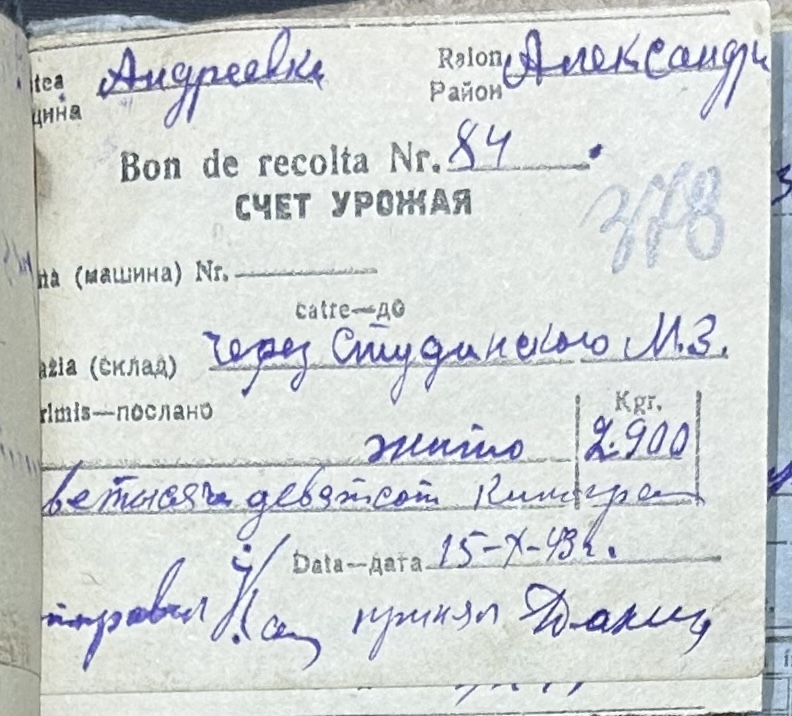 itea Андреевка Raion Александр
щина Район
Bon de recolta Nr. 84
СЧЕТ УРОЖАЯ
378
na (машина) Nr.
catre—до
azia (склад) через Студинского М.З.
rimis—послано Kgr.
жито 2.900
ветысячи девятсот Килограм
Data—дата 15-X-43г.
тправил принял